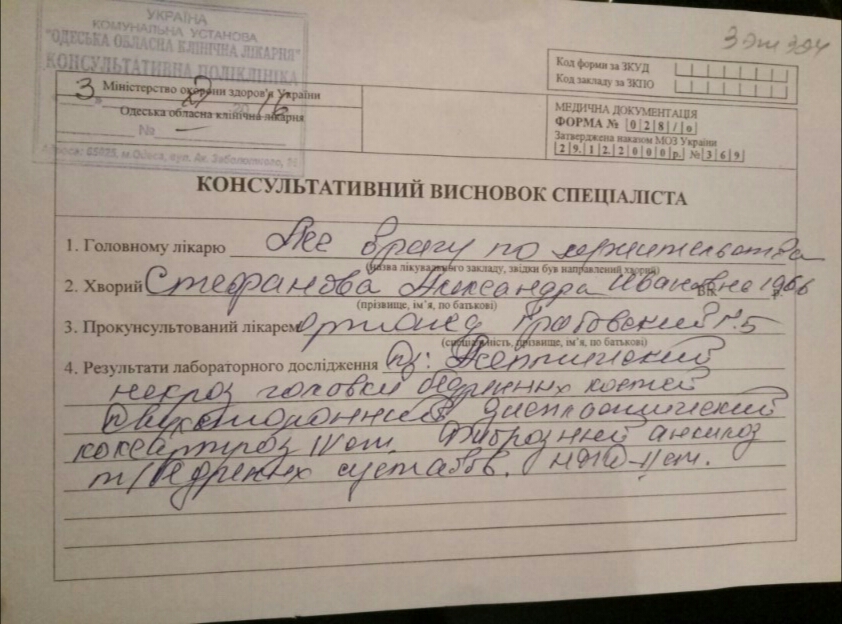 УКРАЇНА
КОМУНАЛЬНА УСТАНОВА
"ОДЕСЬКА ОБЛАСНА КЛІНІЧНА ЛІКАРНЯ"
КОНСУЛЬТАТИВНА ПОЛІКЛІНІКА
3 2016
№
Адреса: 65025, м.Одеса, вул. Ак. Заболотного, 26
3 эт 394
Міністерство охорони здоров'я України
Одеська обласна клінічна лікарня
Код форми за ЗКУД
Код закладу за ЗКПО
МЕДИЧНА ДОКУМЕНТАЦІЯ
ФОРМА № 028/о
Затверджена наказом МОЗ України
29.12.2000р. №369
КОНСУЛЬТАТИВНИЙ ВИСНОВОК СПЕЦІАЛІСТА
1. Головному лікарю врачу по жительства
(назва лікувального закладу, звідки був направлений хворий)
2. Хворий Стефанова Александра Ивановна Вік 1966 р.
(прізвище, ім'я, по батькові)
3. Прокунсультований лікарем ортопед Грабовский Г.Б
(спеціальність, прізвище, ім'я, по батькові)
4. Результати лабораторного дослідження Дз: Асептический
некроз головки бедренных костей
Двухсторонний диспластический
коксартроз IV ст. Фиброзный анкилоз
т/бедренных суставов. НФС-II ст.